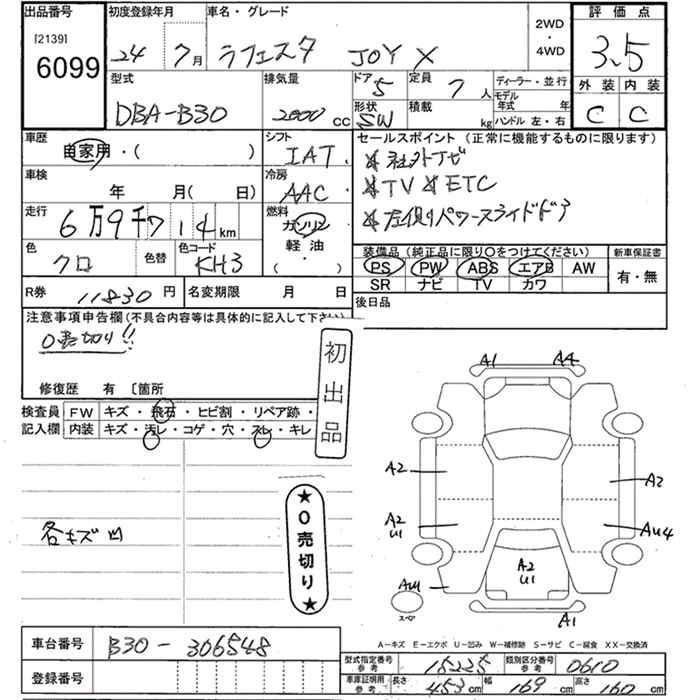 出品番号
[2139]
6099
初度登録年月
24年7月
車名・グレード
ラフェスタ JOY X
2WD
・
4WD
評価点
3.5
外装 内装
C C
型式
DBA-B30
排気量
2000 cc
ドア 5
形状 SW
定員 7 人
積載 kg
ディーラー・並行
モデル年式 年
ハンドル 左・右
車歴
自家用・( )
シフト
IAT
車検
年 月( 日)
冷房
AAC
走行
6万9千714km
燃料
ガソリン
軽油
( ・ )
色
クロ
色替
色コード
KH3
R券 11830円
名変期限 月 日
セールスポイント(正常に機能するものに限ります)
社外ナビ
TV ETC
左側パワースライドドア
装備品(純正品に限り○をつけてください)
PS PW ABS エアB AW
SR ナビ TV カワ
新車保証書
有・無
後日品
注意事項申告欄(不具合内容等は具体的に記入して下さい)
0売切り!!
修復歴 有 〔箇所
初出品
検査員記入欄
FW キズ・飛石・ヒビ割・リペア跡・
内装 キズ・汚レ・コゲ・穴・スレ・キレ
各キズ凹
★0売切り★
A1 A4
A2 A2
A2 U1 AU4
A2 U1
AU1
スペア
A1
A-キズ E-エクボ U-凹み W-補修跡 S-サビ C-腐食 XX-交換済
車台番号 B30-306548
登録番号
型式指定番号 参考 15225
類別区分番号 参考 0610
車庫証明用 参考 長さ 453cm 幅 169cm 高さ 160cm